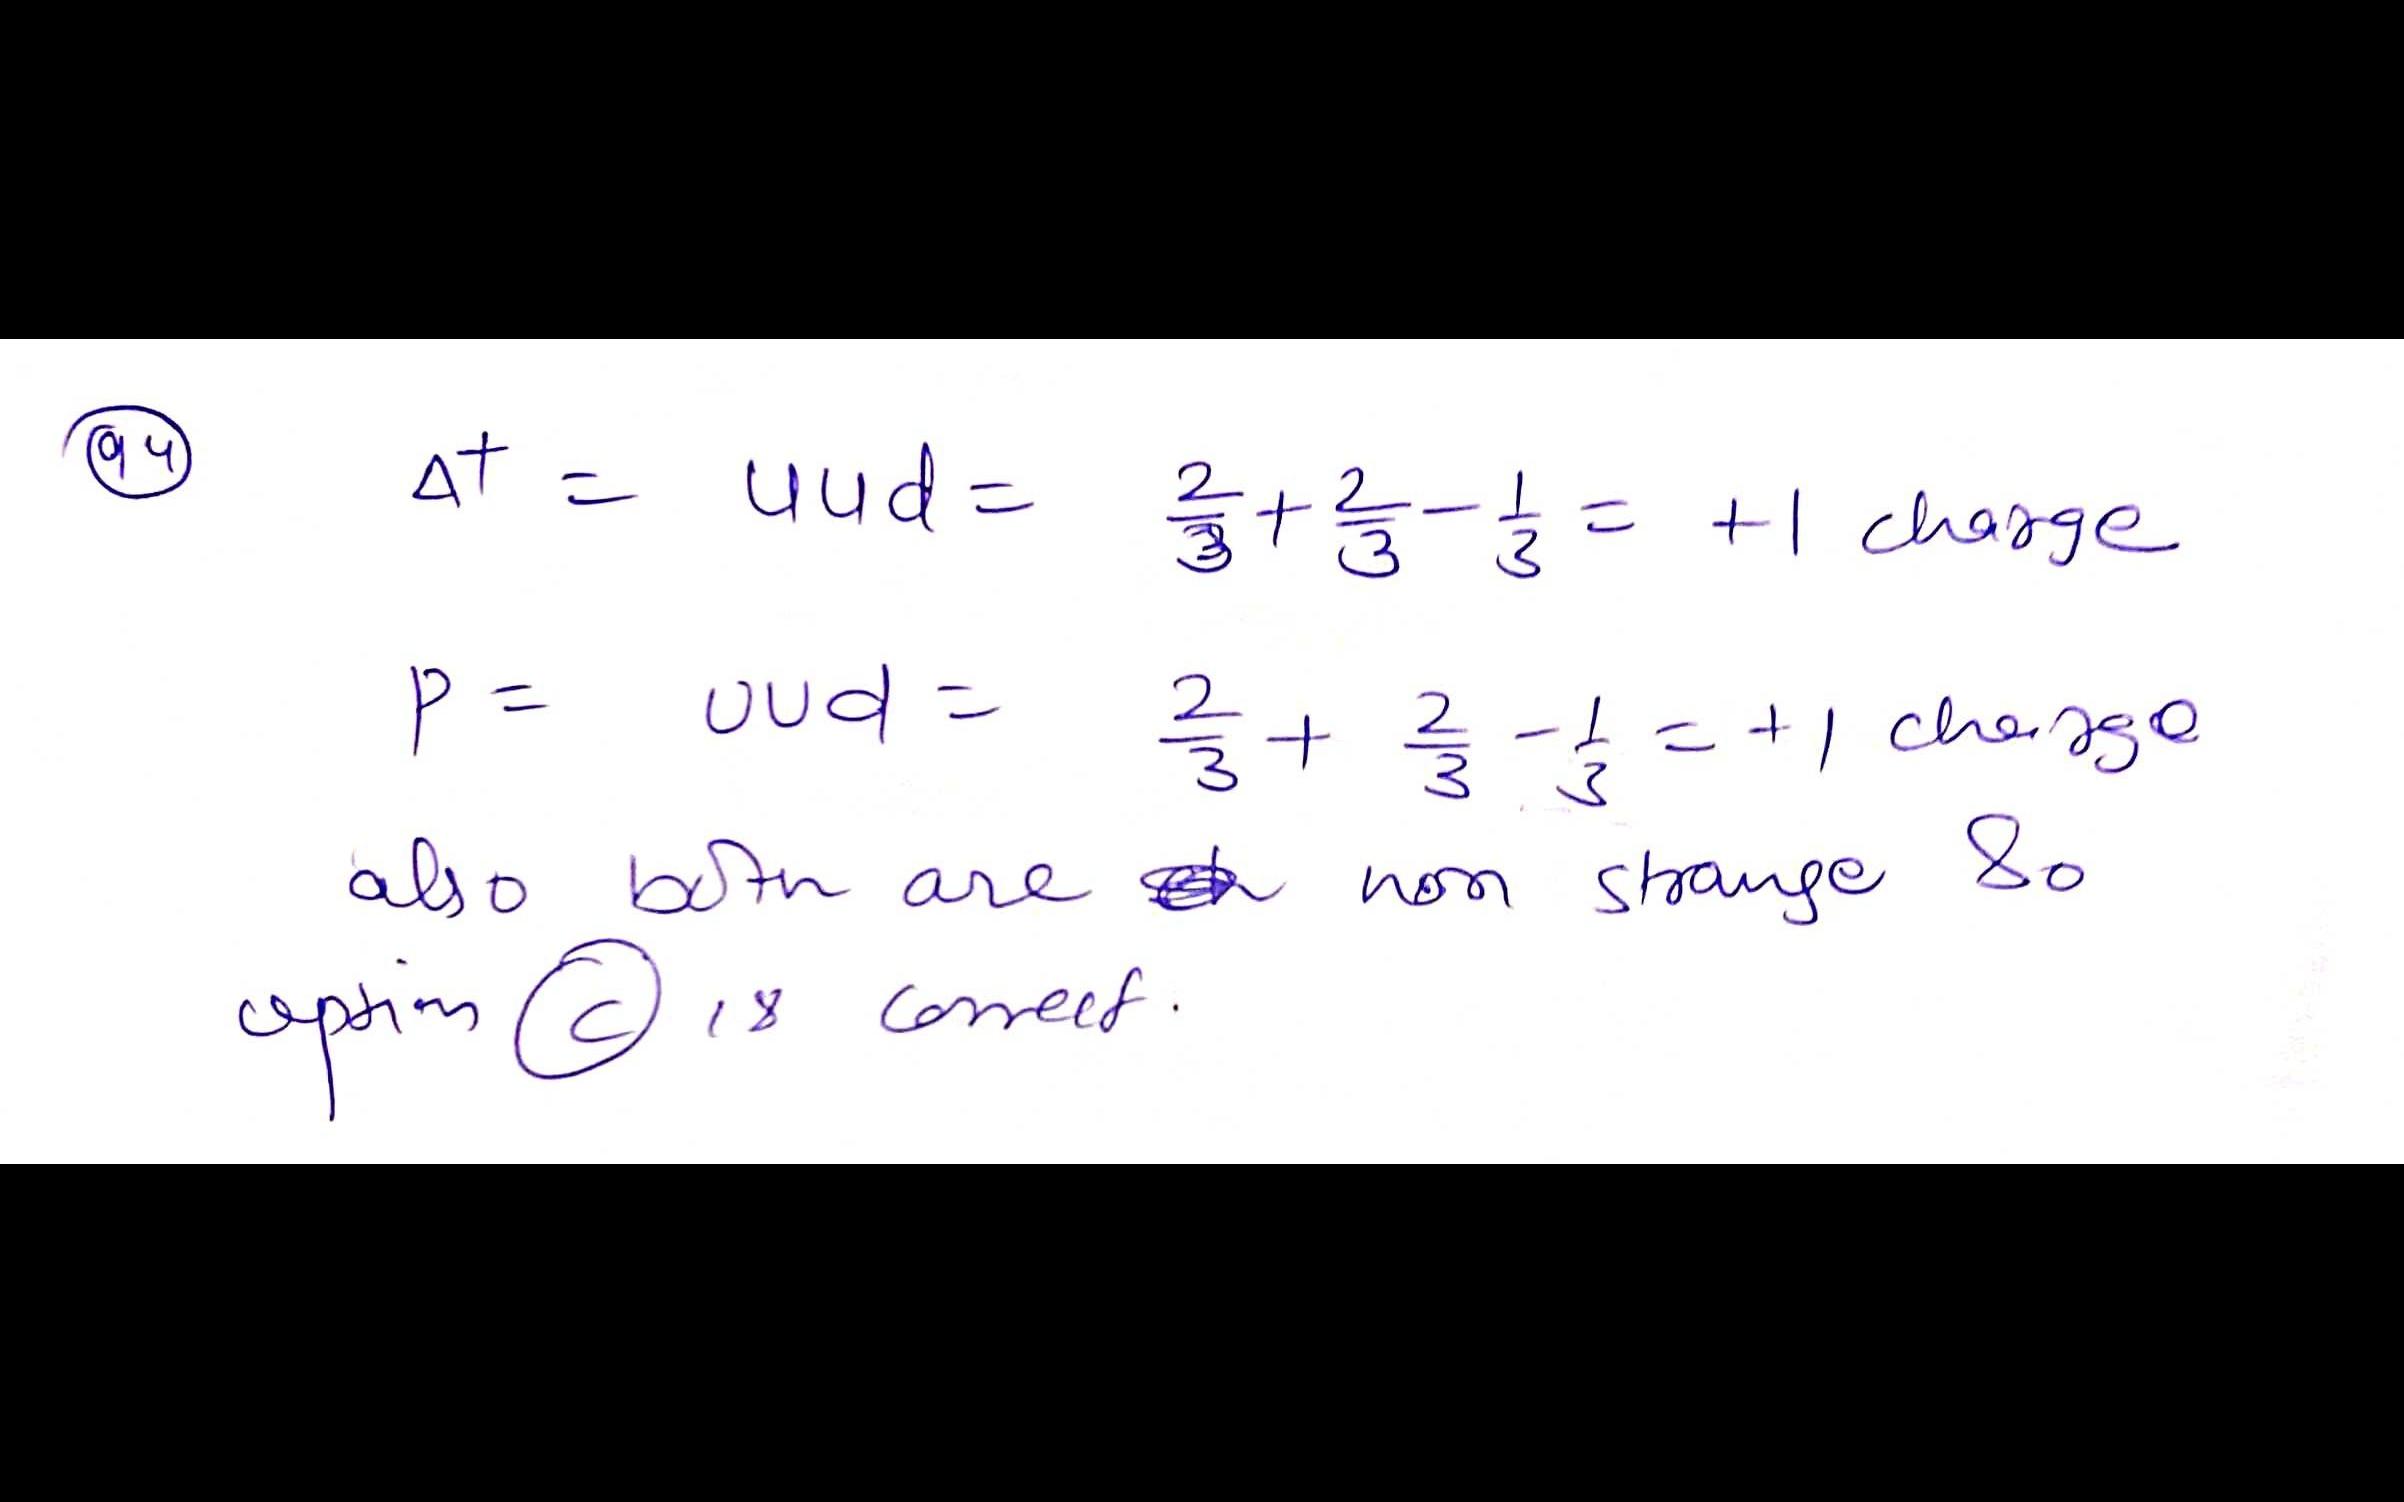 94 Δ+ = uud = 2/3 + 2/3 - 1/3 = +1 charge
P = uud = 2/3 + 2/3 - 1/3 = +1 charge
also both are non strange So
option C is correct.